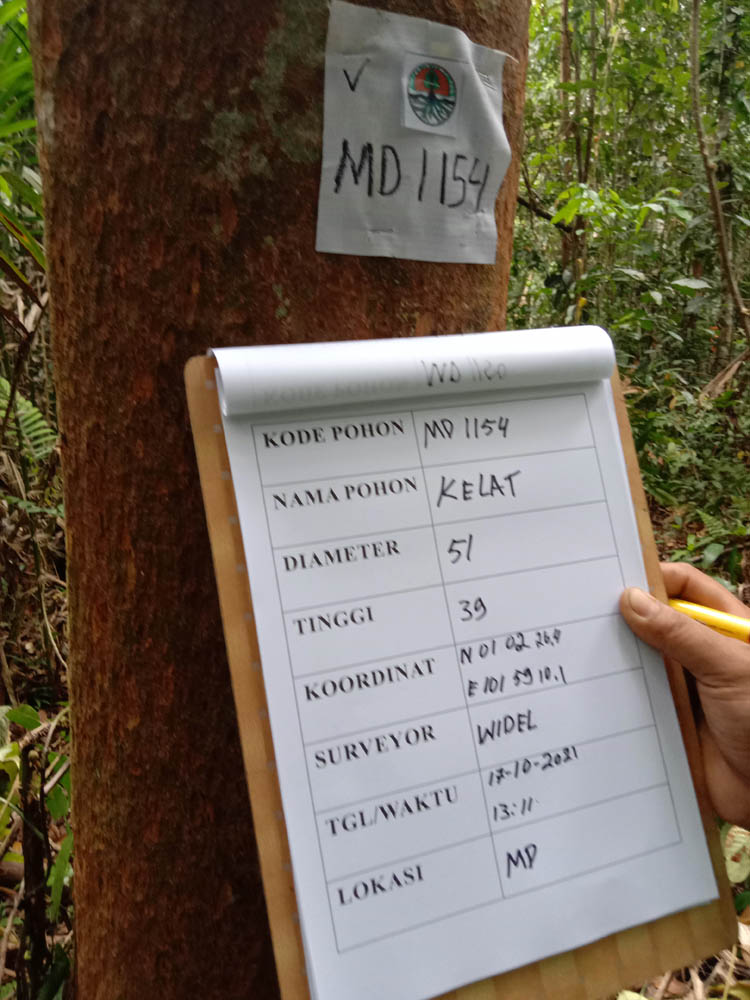 ✓
MD 1154
WD 1120
KODE POHON MD 1154
NAMA POHON KELAT
DIAMETER 51
TINGGI 39
KOORDINAT N 01 02 26,4
E 101 59 10.1
SURVEYOR WIDEL
TGL/WAKTU 17-10-2021
13:11
LOKASI MD